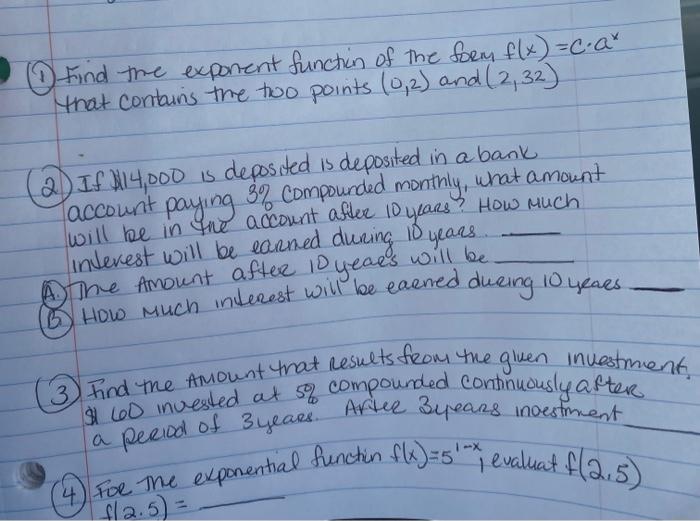 ① Find the exponent functin of the foem f(x) = C·aˣ
that contains the two points (0,2) and (2,32)
② If $14,000 is deposited is deposited in a bank
account paying 3% compounded monthly, what amount
will be in the account after 10 years? How much
interest will be earned during 10 years. ____
Ⓐ The Amount after 10 years will be ____
Ⓑ How much interest will be earned during 10 years ____
③ Find the Amount that results from the given investment.
$160 invested at 5% compounded continuously after
a period of 3 years. After 3 years investment ____
④ For The exponential functin f(x) = 5¹⁻ˣ, evaluat f(2.5)
f(2.5) = ____